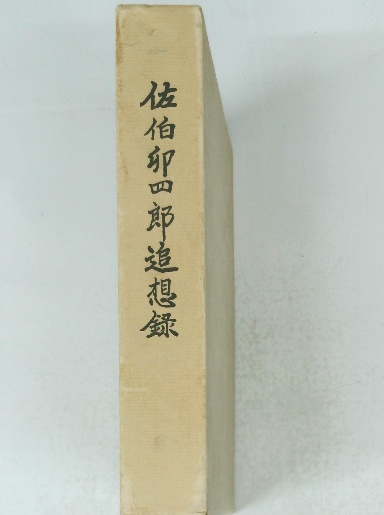 佐伯卯四郎追想録